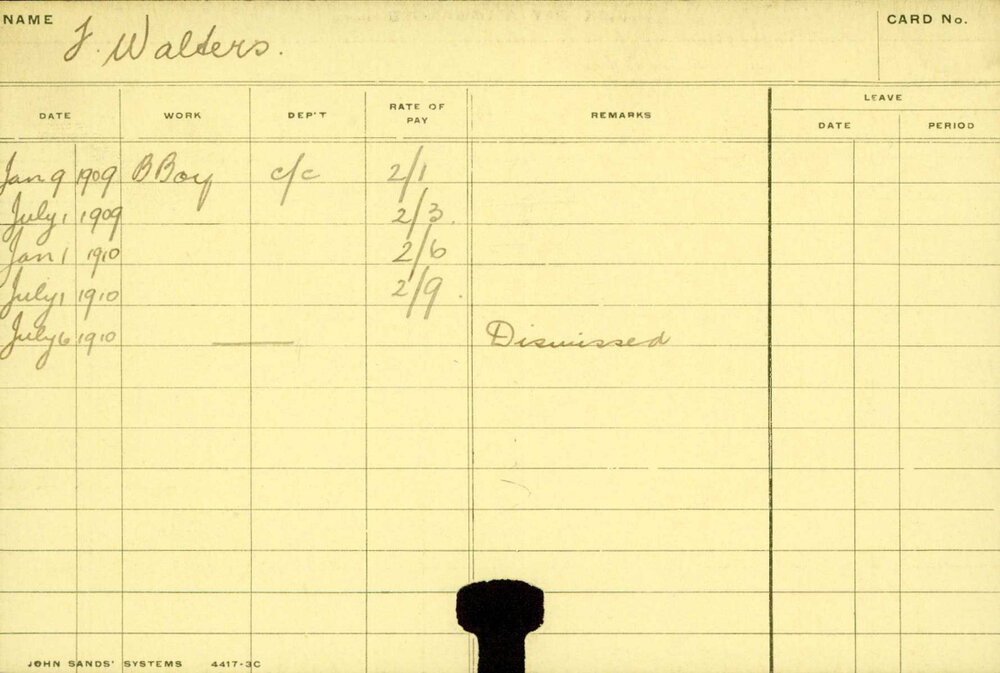 NAME J. Walters. CARD No.
DATE WORK DEP'T RATE OF PAY REMARKS LEAVE
DATE PERIOD
Jan 9 1909 B Boy c/c 2/1
July 1 1909 2/3.
Jan 1 1910 2/6
July 1 1910 2/9.
July 6 1910 — Dismissed
JOHN SANDS' SYSTEMS 4417·3C